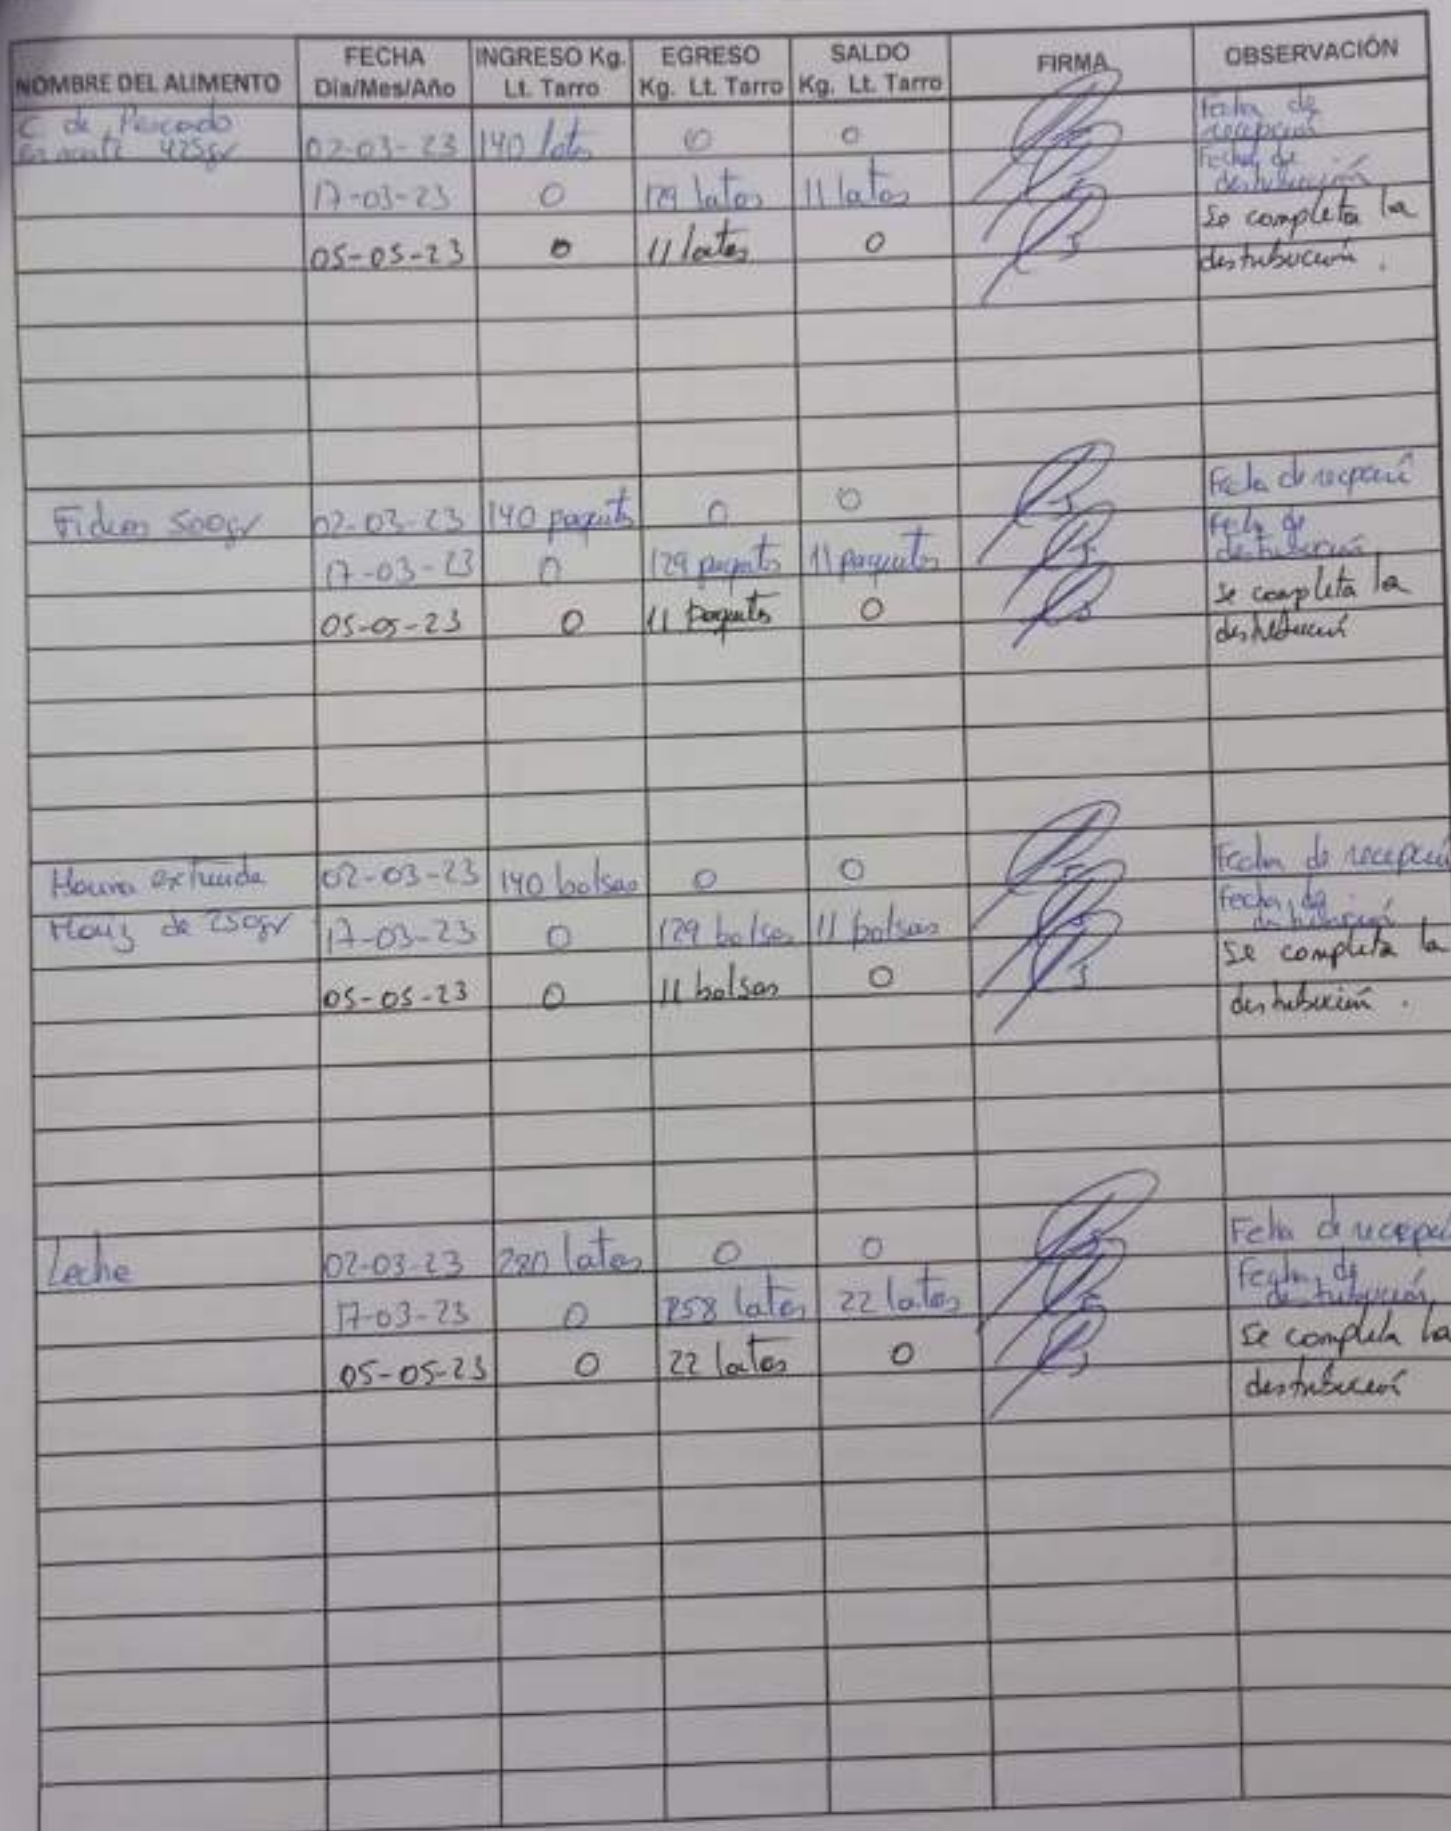 NOMBRE DEL ALIMENTO FECHA Día/Mes/Año INGRESO Kg. Lt. Tarro EGRESO Kg. Lt. Tarro SALDO Kg. Lt. Tarro FIRMA OBSERVACIÓN
C de Pescado
en aceite 425gr 02-03-23 140 latas 0 0 Fecha de recepción
17-03-23 0 129 latas 11 latas Fecha de destribución
05-05-23 0 11 latas 0 Se completa la
destribución.
Fideos 500gr 02-03-23 140 paquets 0 0 Fecha de recpeció
17-03-23 0 129 paquets 11 paquetes Fecha de destribución
05-05-23 0 11 paquets 0 Se completa la
destribució
Harina extruida 02-03-23 140 bolsas 0 0 Fecha de recepció
Maiz de 250gr 17-03-23 0 129 bolsas 11 bolsas Fecha de
05-05-23 0 11 bolsas 0 Se completa la
destribución.
Leche 02-03-23 280 latas 0 0 Fecha de recepció
17-03-23 0 258 latas 22 latas Fecha de destribución
05-05-23 0 22 latas 0 Se completa la
destribució